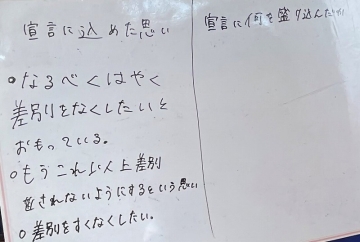 宣言に込めた思い
○なるべくはやく
差別をなくしたいと
おもっている。
○もうこれ以上差別
されないようにするという思い
○差別をすくなくしたい。
宣言に何を盛り込んだか